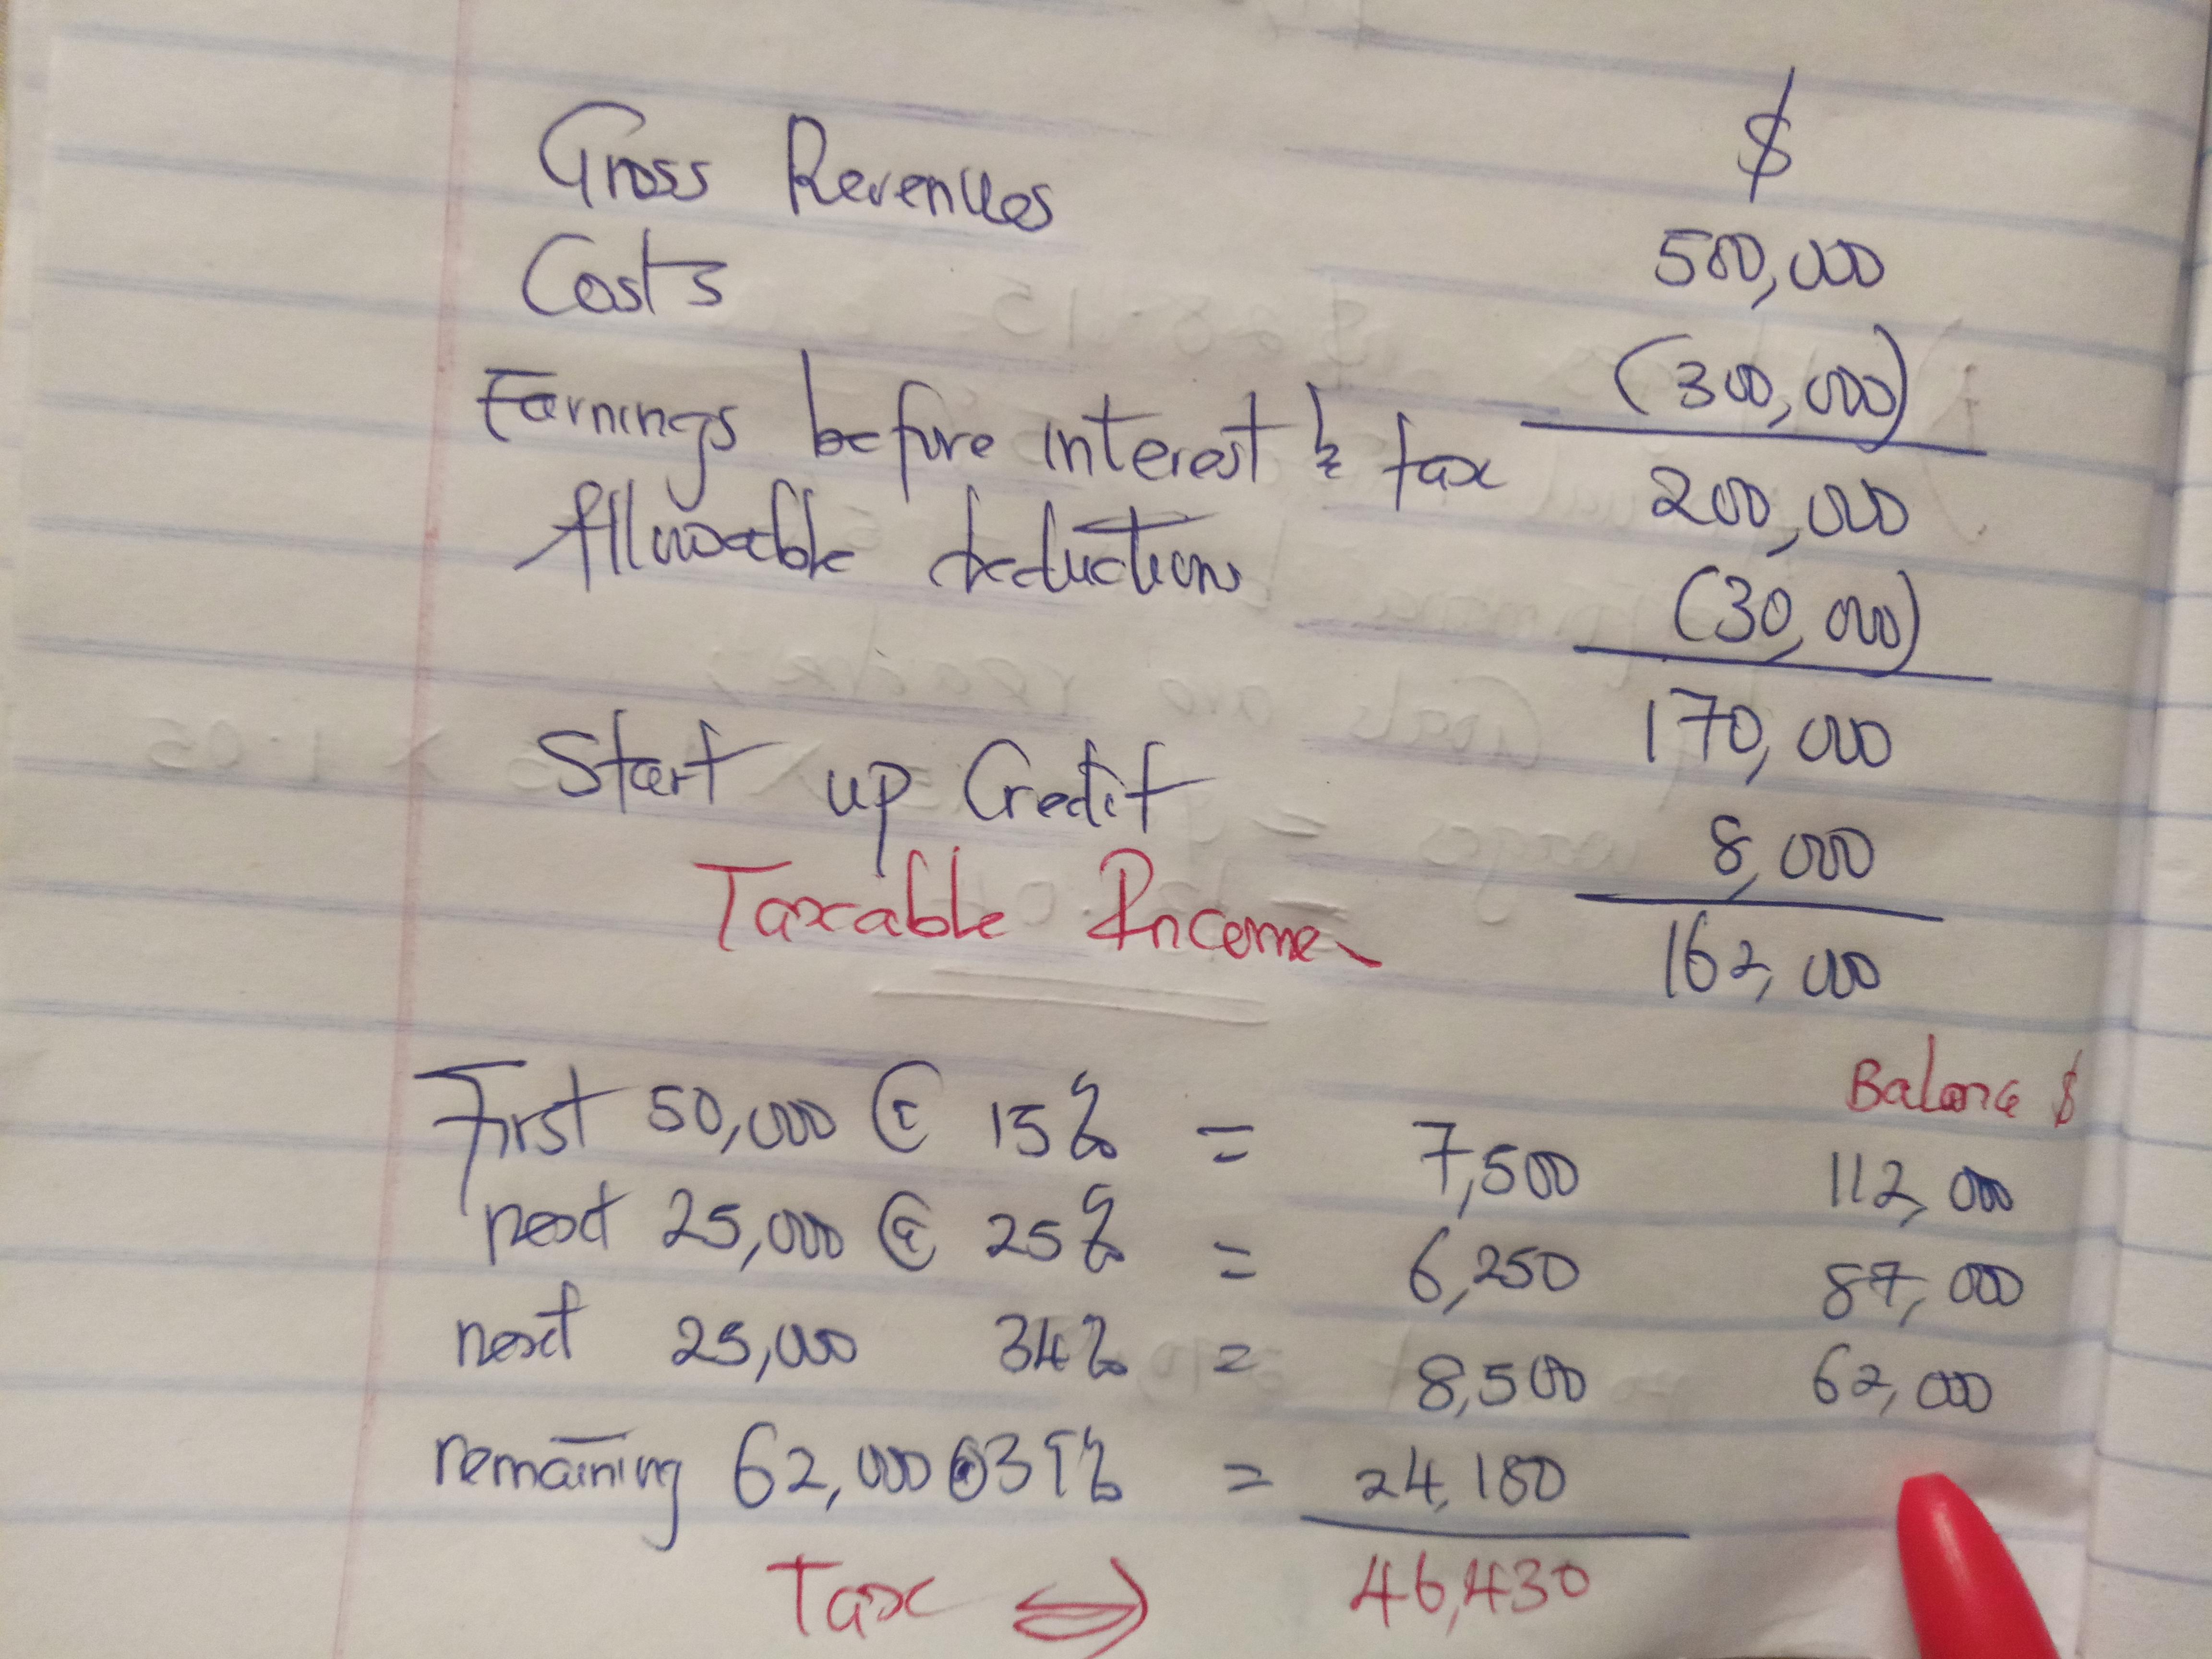 $
Gross Revenues 500,000
Costs (300,000)
Earnings before interest & tax 200,000
Allowable deductions (30,000)
170,000
Start up Credit 8,000
Taxable Income 162,000
Balance $
First 50,000 @ 15% = 7,500 112,000
next 25,000 @ 25% = 6,250 87,000
next 25,000 34% = 8,500 62,000
remaining 62,000 @ 39% = 24,180
Tax 46,430